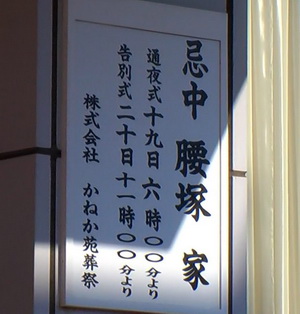 忌中 腰塚 家
通夜式 十九日 六時〇〇分より
告別式 二十日 十一時〇〇分より
株式会社 かねか苑葬祭